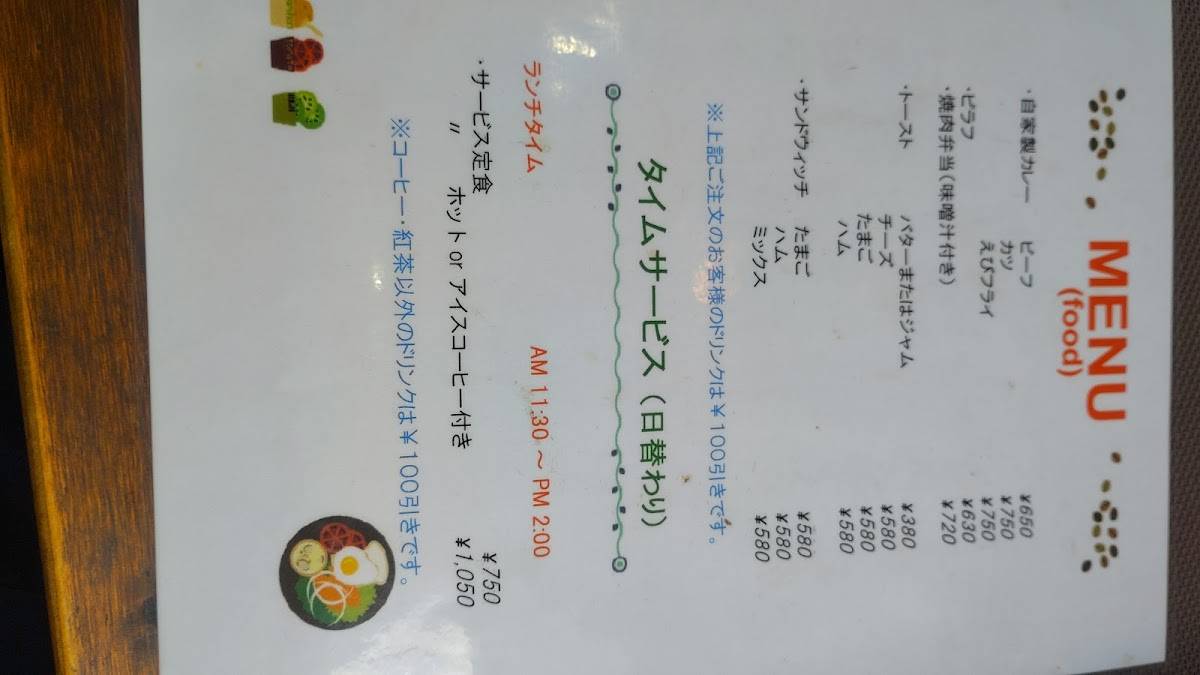 MENU
(food)
・自家製カレー ビーフ ¥650
カツ ¥750
えびフライ ¥750
・ピラフ ¥630
・焼肉弁当(味噌汁付き) ¥720
・トースト バターまたはジャム ¥380
チーズ ¥580
たまご ¥580
ハム ¥580
・サンドウィッチ たまご ¥580
ハム ¥580
ミックス ¥580
※上記ご注文のお客様のドリンクは¥100引きです。
タイムサービス(日替わり)
ランチタイム AM 11:30 ～ PM 2:00
・サービス定食 ¥750
〃 ホット or アイスコーヒー付き ¥1,050
※コーヒー・紅茶以外のドリンクは¥100引きです。